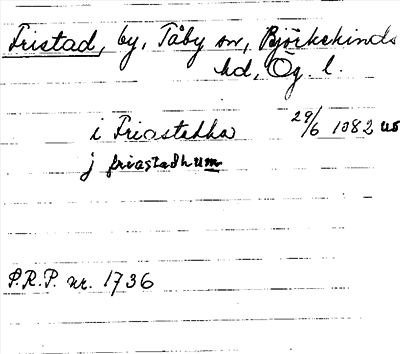 Fristad, by, Tåby sn, Björkekinds
hd, Ög. l.
i Friastadha 29/6 1382 us
j friastadhum
P.R.P. nr. 1736